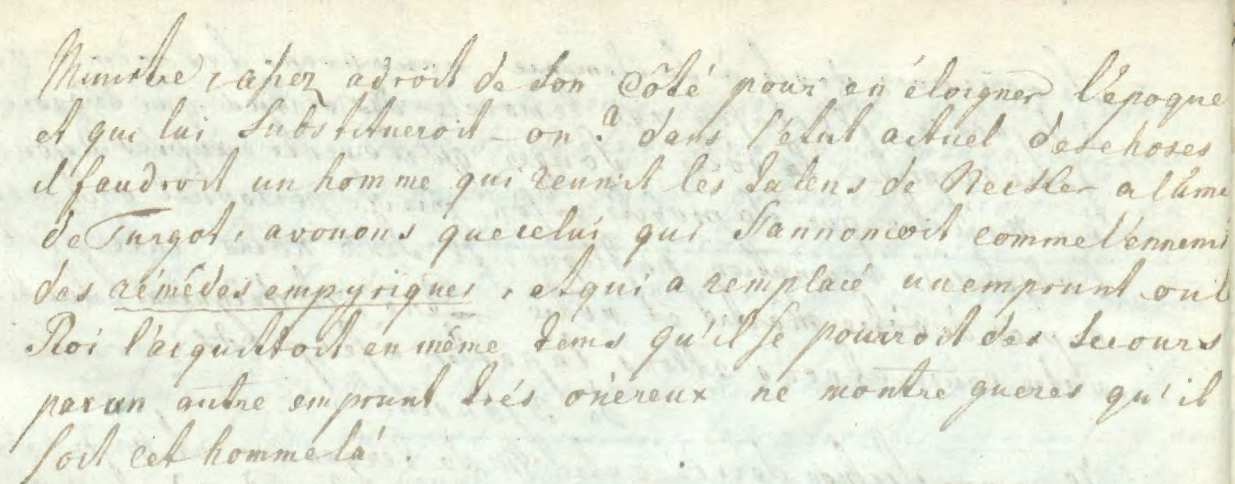 Ministre assez adroit de son côté pour en éloigner l'époque
et qui lui Substitueroit-on? dans l'état actuel des choses
il faudroit un homme qui reunit les talens de Necker a l'ame
de Turgot, avouons que celui qui S'annoncoit comme l'ennemi
des rémèdes empyriques, et qui a remplacé un emprunt ou le
Roi l'acquittoit en même tems qu'il se pourroit des Secours
par un autre emprunt trés onéreux ne montre gueres qu'il
soit cet homme là.